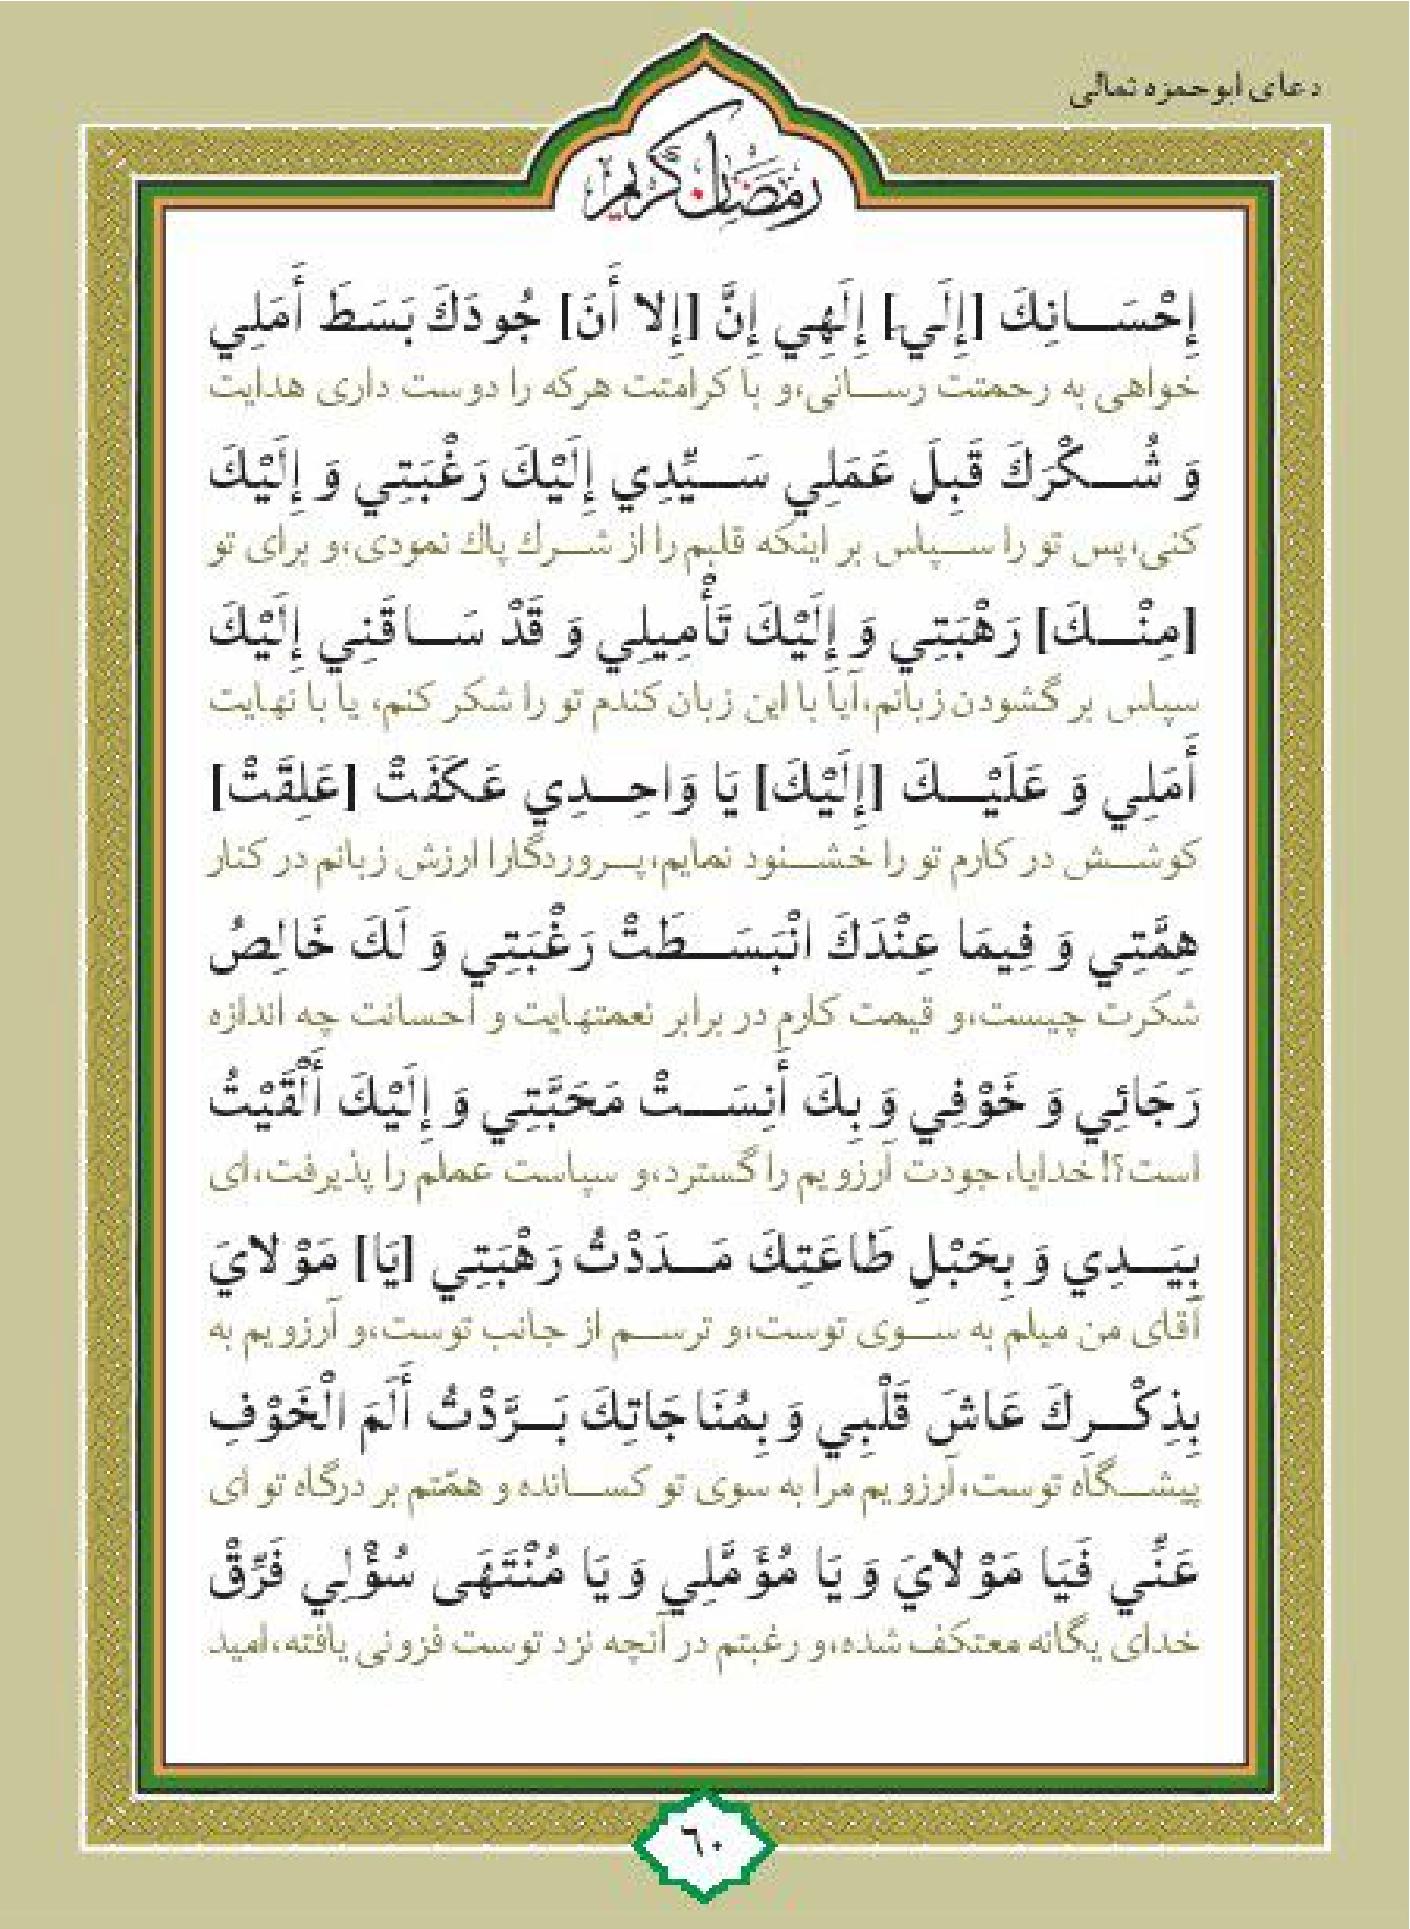 دعای ابوحمزه ثمالی
رمضان کریم
إِحْسَـــانِكَ [إِلَي] إِلَهِي إِنَّ [إِلا أَنَ] جُودَكَ بَسَطَ أَمَلِي
خواهی به رحمتت رســـانی،و با کرامتت هرکه را دوست داری هدایت
وَ شُـــكْرَكَ قَبِلَ عَمَلِي سَـــيِّدِي إِلَيْكَ رَغْبَتِي وَ إِلَيْكَ
کنی،پس تو را ســـپاس بر اینکه قلبم را از شـــرك پاك نمودی،و برای تو
[مِنْـــكَ] رَهْبَتِي وَ إِلَيْكَ تَأْمِيلِي وَ قَدْ سَـــاقَنِي إِلَيْكَ
سپاس بر گشودن زبانم،آیا با این زبان کندم تو را شکر کنم، یا با نهایت
أَمَلِي وَ عَلَيْـــكَ [إِلَيْكَ] يَا وَاحِـــدِي عَكَفَتْ [عَلِقَتْ]
کوشـــش در کارم تو را خشـــنود نمایم،پـــروردگارا ارزش زبانم در کنار
هِمَّتِي وَ فِيمَا عِنْدَكَ انْبَسَـــطَتْ رَغْبَتِي وَ لَكَ خَالِصُ
شکرت چیست،و قیمت کارم در برابر نعمتهایت و احسانت چه اندازه
رَجَائِي وَ خَوْفِي وَ بِكَ أَنِسَـــتْ مَحَبَّتِي وَ إِلَيْكَ أَلْقَيْتُ
است؟!خدایا،جودت آرزویم را گسترد،و سپاست عملم را پذیرفت،ای
بِيَـــدِي وَ بِحَبْلِ طَاعَتِكَ مَـــدَدْتُ رَهْبَتِي [يَا] مَوْلايَ
آقای من میلم به ســـوی توست،و ترســـم از جانب توست،و آرزویم به
بِذِكْـــرِكَ عَاشَ قَلْبِي وَ بِمُنَاجَاتِكَ بَـــرَّدْتُ أَلَمَ الْخَوْفِ
پیشـــگاه توست،آرزویم مرا به سوی تو کســـانده و همّتم بر درگاه تو ای
عَنِّي فَيَا مَوْلايَ وَ يَا مُؤَمَّلِي وَ يَا مُنْتَهَى سُؤْلِي فَرِّقْ
خدای یگانه معتکف شده،و رغبتم در آنچه نزد توست فزونی یافته،امید
٦٠